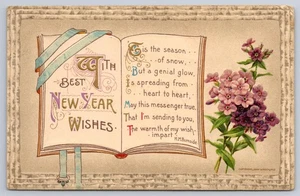 With
Best
New Year
Wishes.
'Tis the season
of snow,
But a genial glow,
Is spreading from
heart to heart,
May this messenger true,
That I'm sending to you,
The warmth of my wish
impart.